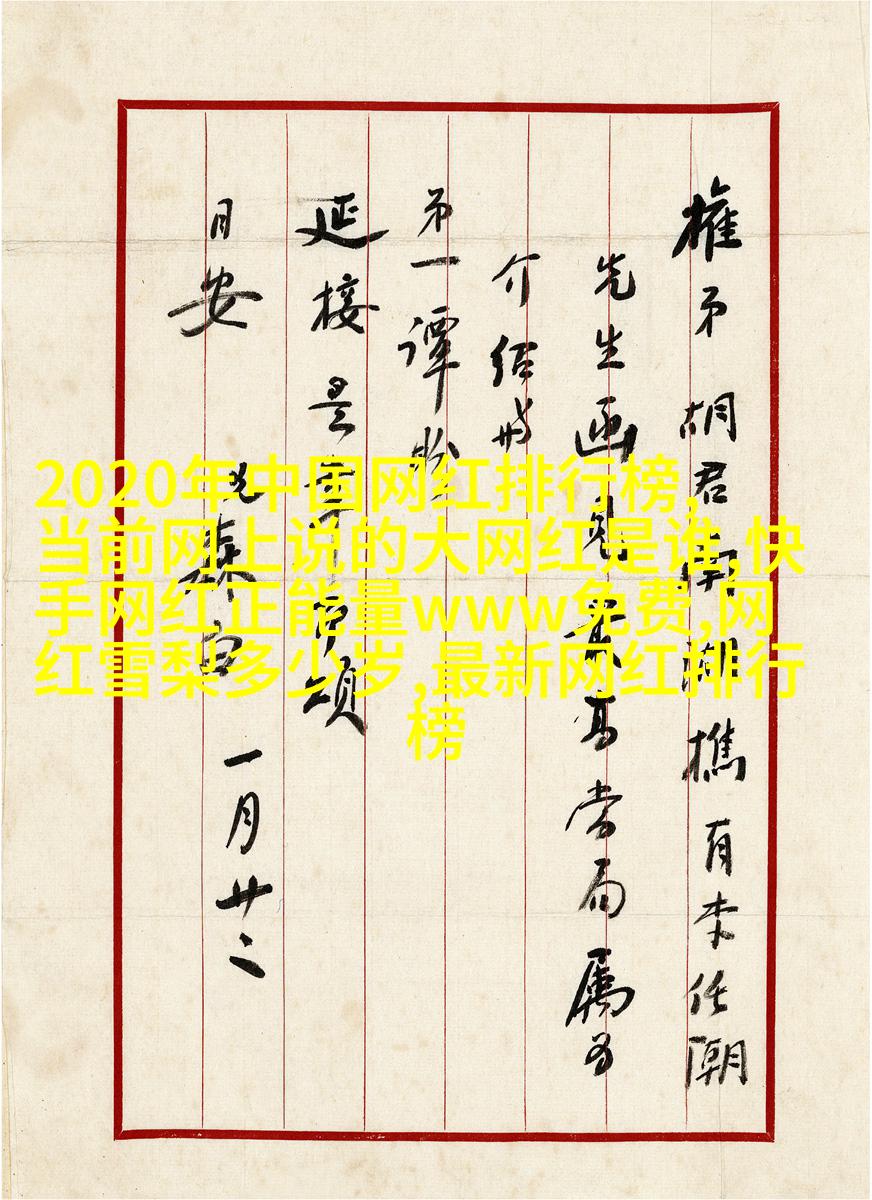 權弟胡君南湖樵有李任潮
先生函見
高當局属为
介绍
弟一譚
延接是幸
頌
日安
一月廿二
2020年中国网红排行榜,
当前网上说的大网红是谁,快
手网红正能量www免费,网
红雪梨多少岁,最新网红排行
榜